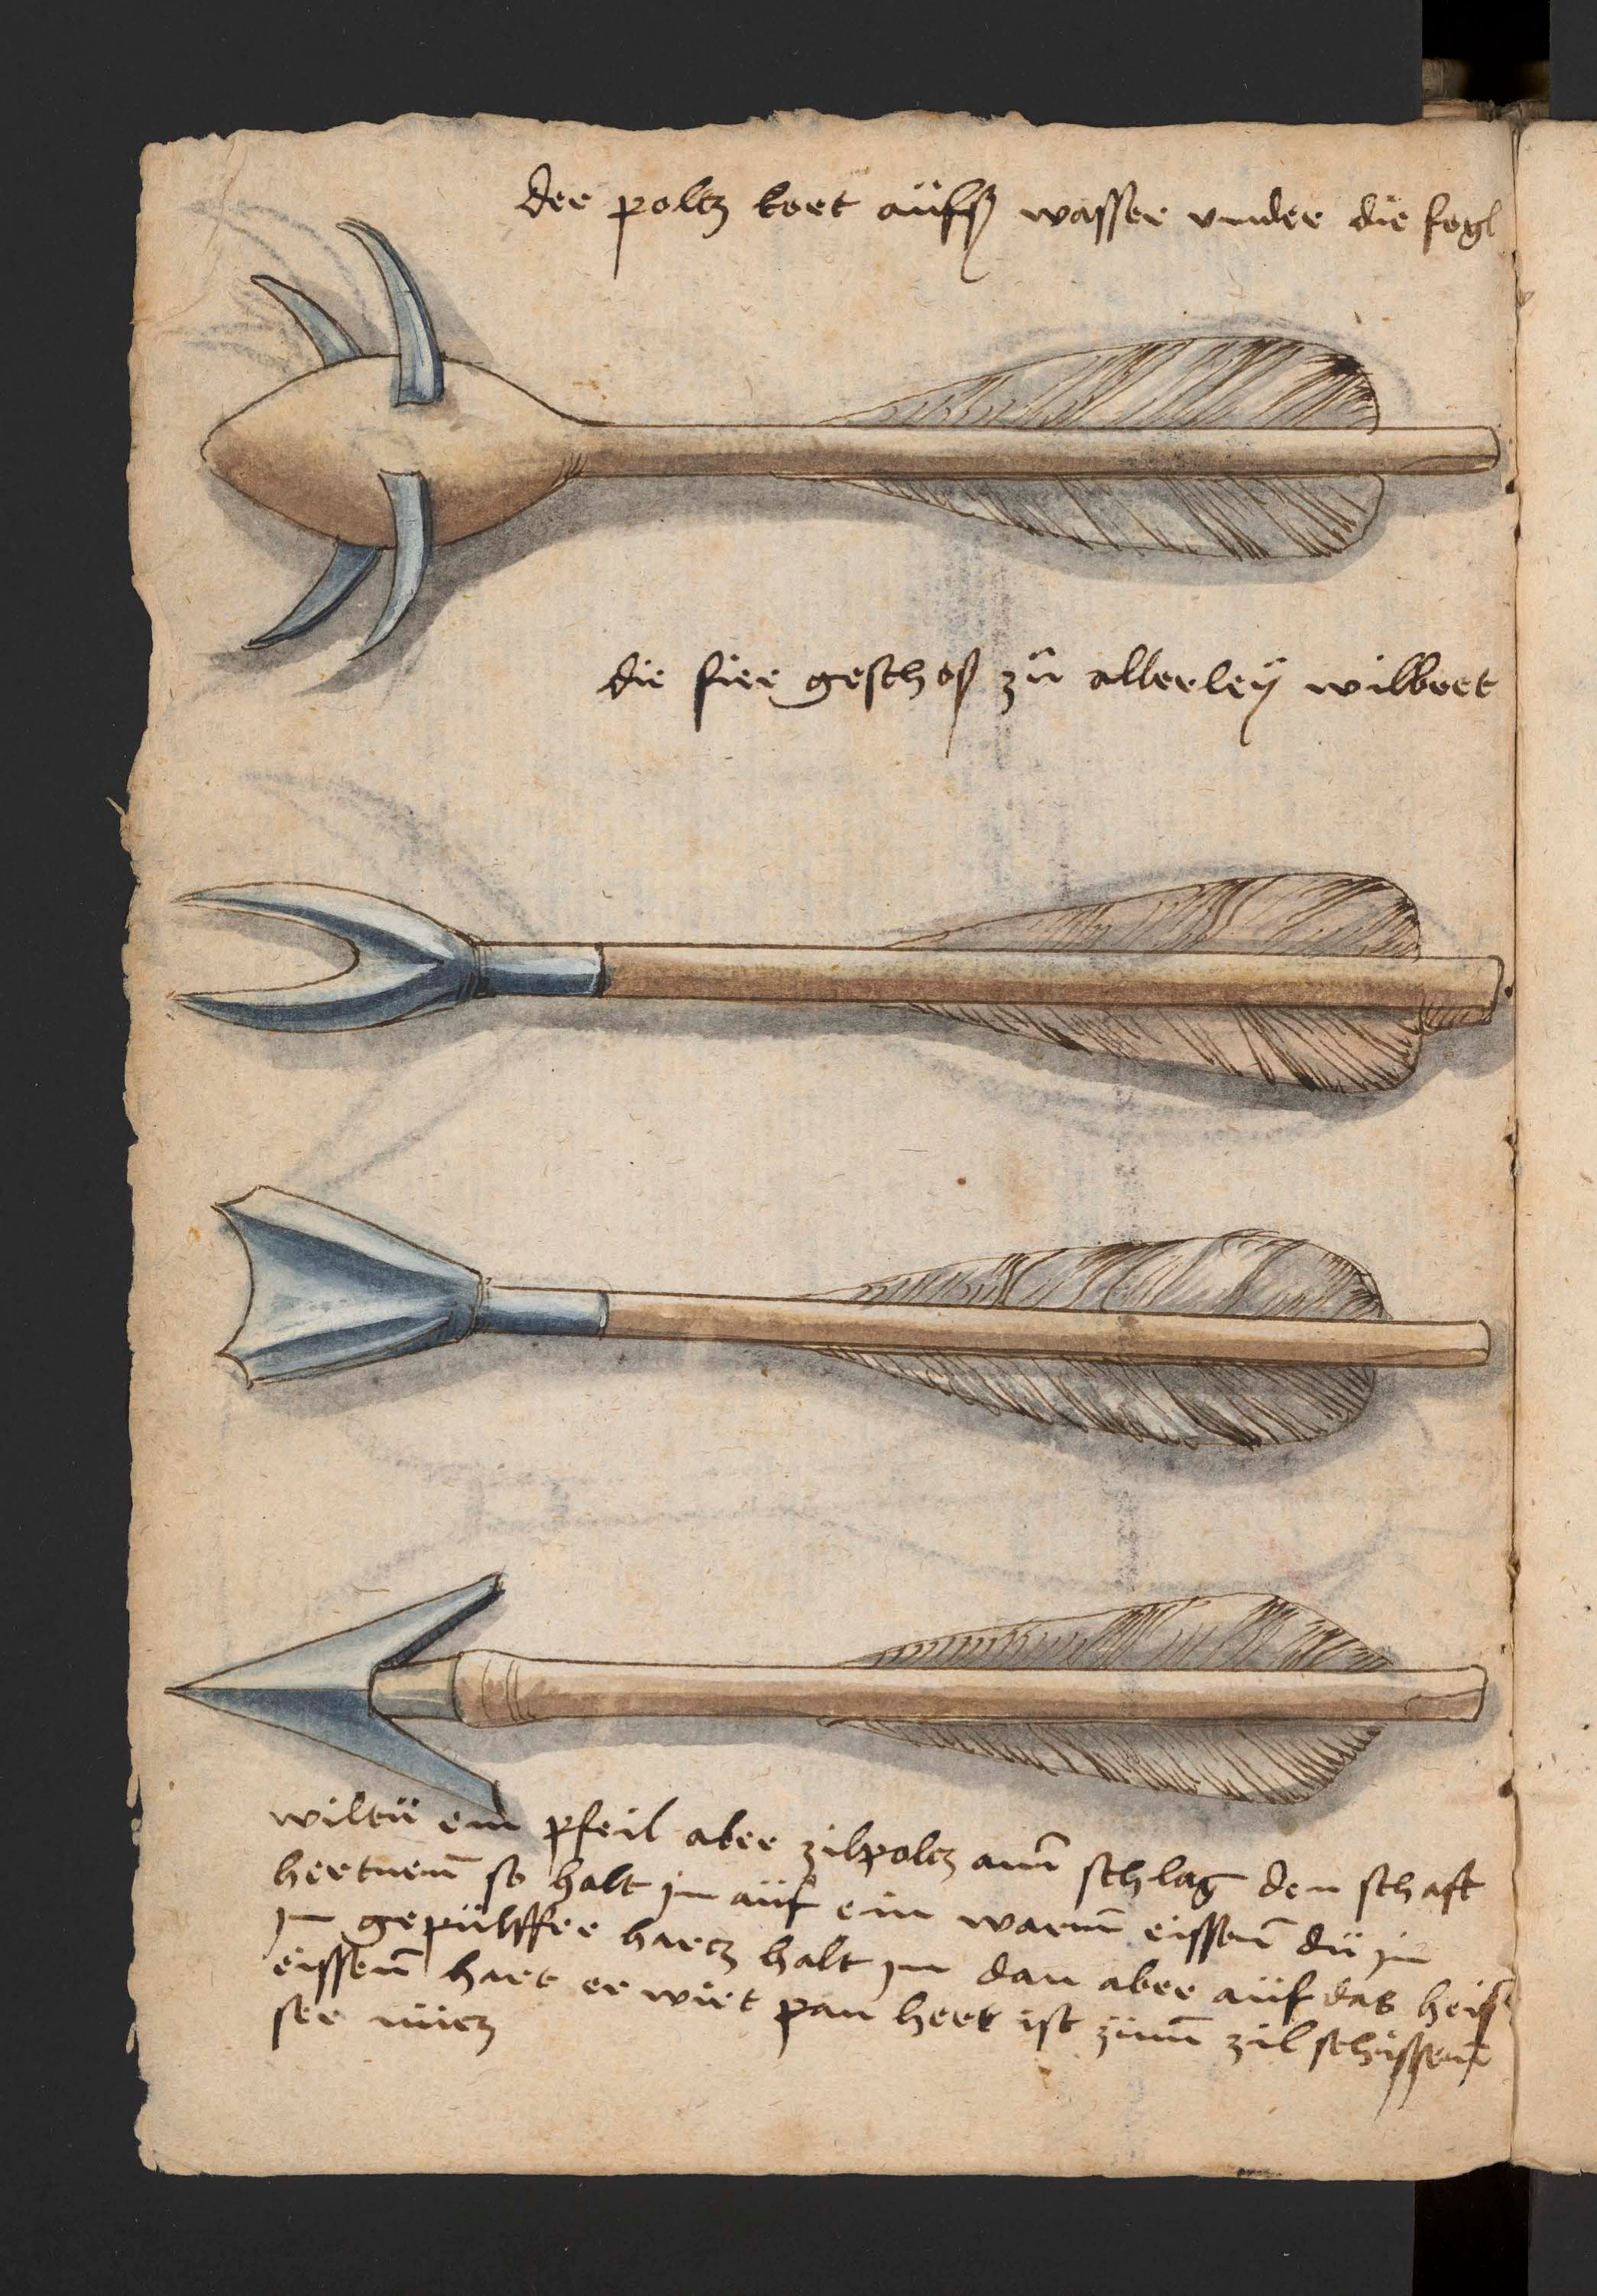 der poltz kert aüfs wasser vnder die fogl
die fier geschoß zů allerleÿ wilbret
wiltü ein pfeil aber zilpoltz ann schlag den schaft
hertnenn so halt jm aüf ein warmm eissenn dü jn
jn gepülffer harcz halt jm dan aber aüf das heis
eissenn hart er wirt pan hert ist zümm zil schissenn
ser nücz